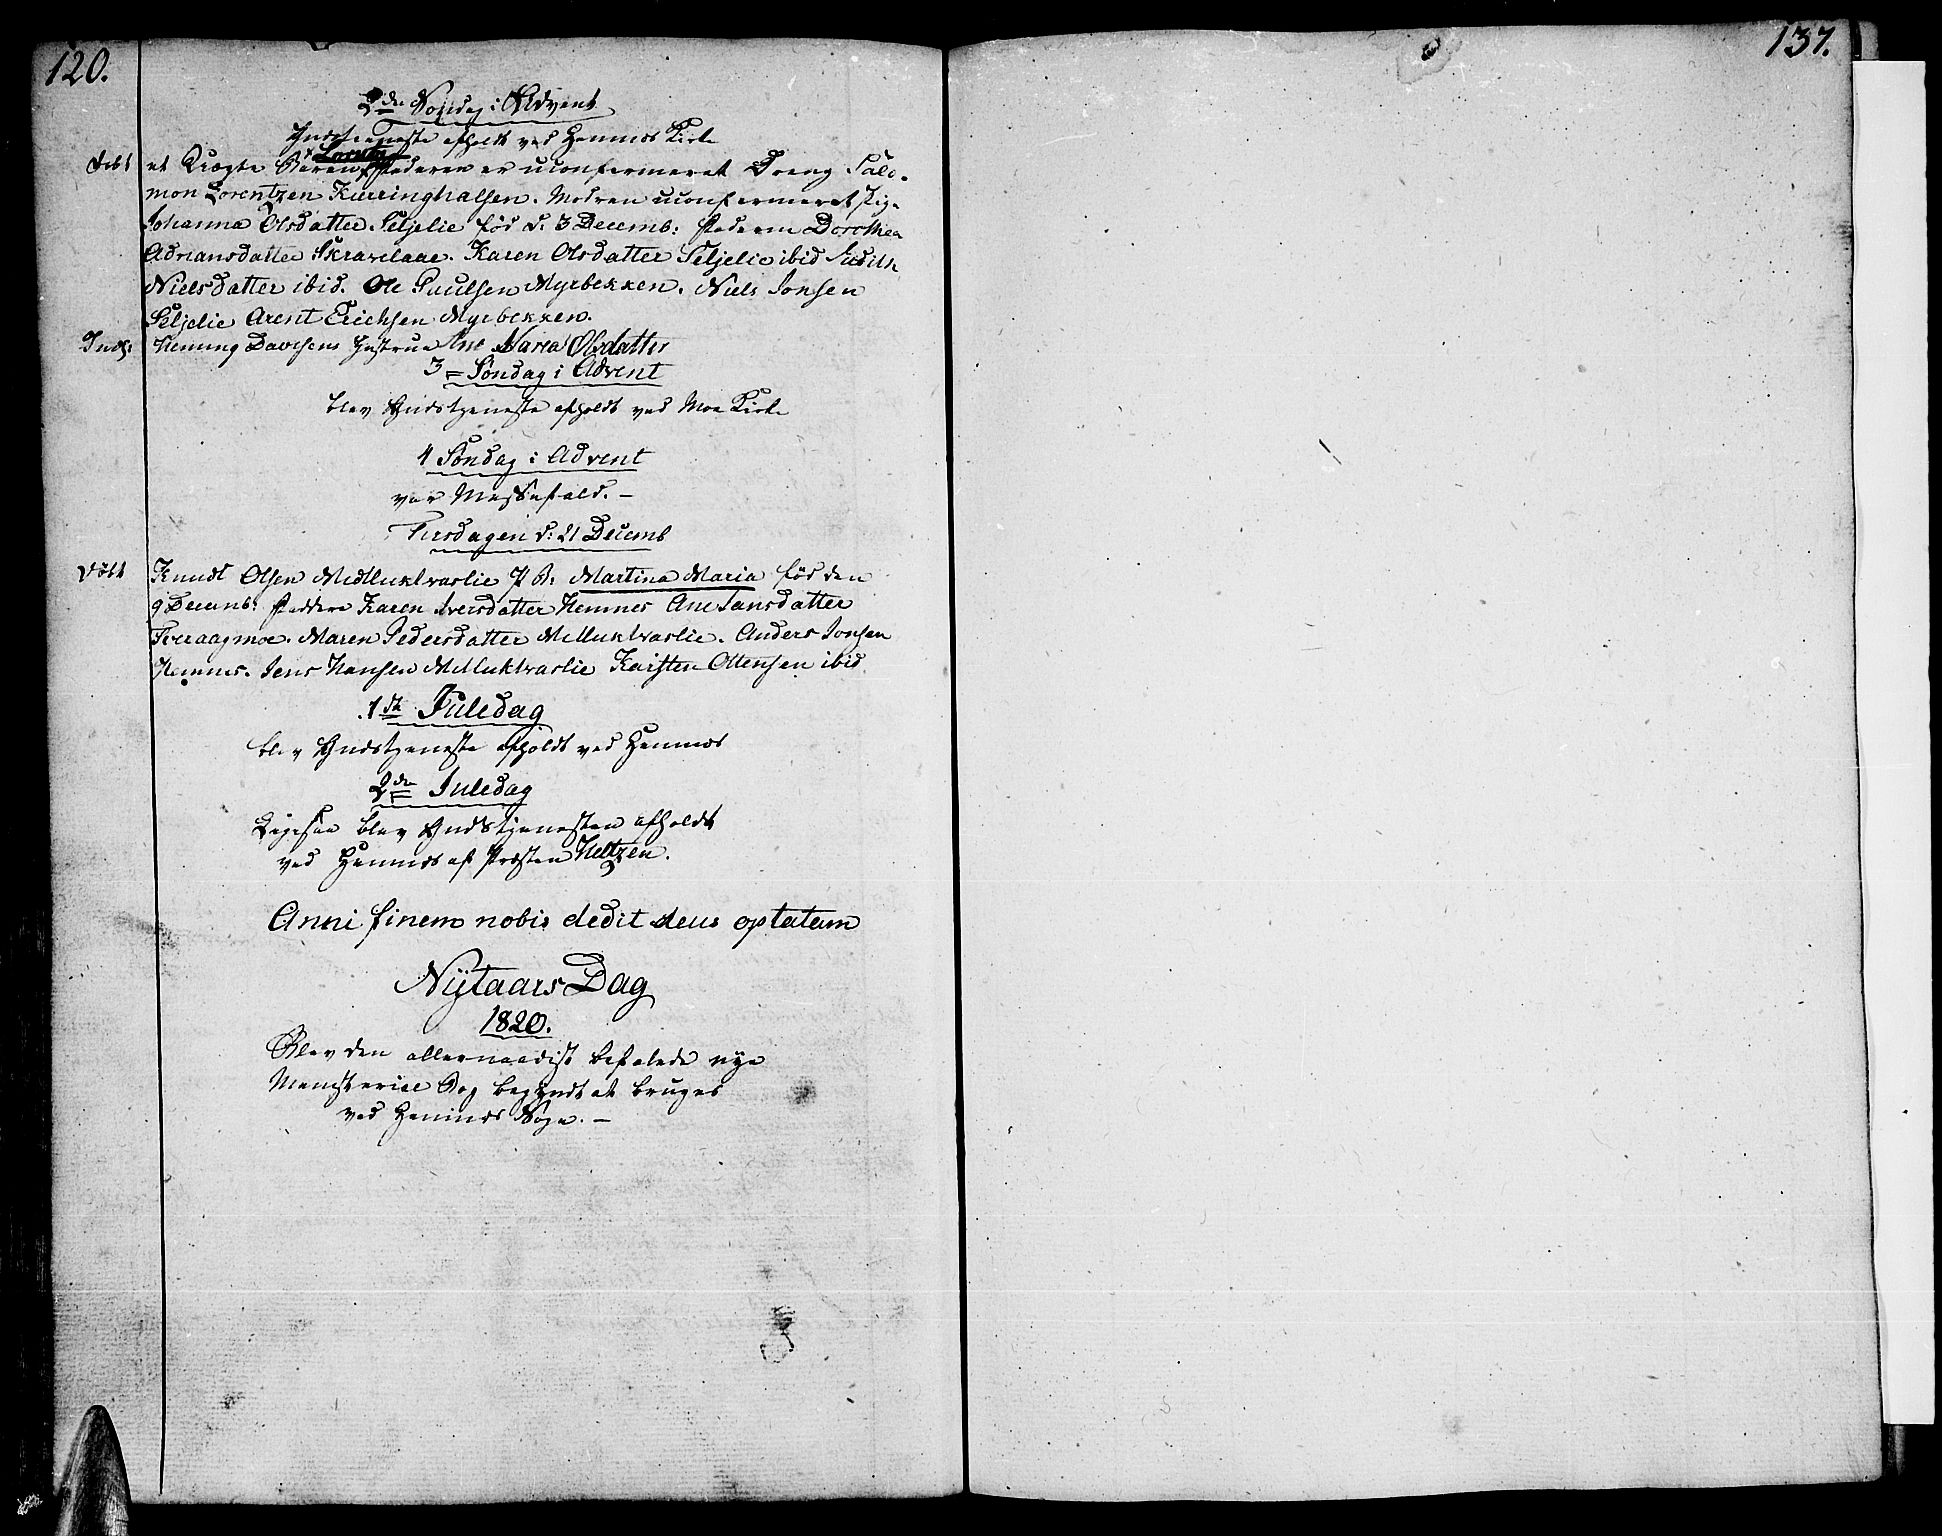 120.
137.
2den Søndag i Advent
Gudstieneste afholdt ved Hemnes Kirke
Døbt et Uægte Barn Lorentz Faderen er uconfermeret Dreng Salo-
mon Lorentzen Kierringhalsen. Modren uconfermeret Pige
Johanna Olsdatter Seljelie fød d. 3 Decemb: Fadderne Dorothea
Adriansdatter Skravelaae. Karen Olsdatter Seljelie ibid Judith
Nielsdatter ibid. Ole Paulsen Myrbekken. Niels Jonsen
Seljelie Arent Erichsen Myrbekken.
Inds: Heming Davidsens Hustrue Ane Maria Olsdatter
3 = Søndag i Advent
blev Gudstjeneste afholdt ved Moe Kirke
4 Søndag i Advent
var Messefald. –
Tirsdagen d: 21 Decemb
Døbt Knudt Olsen Midluktvaslie P B: Martina Maria fød den
9 Decemb: Faddere Karen Iversdatter Hemnes Ane Jansdatter
Tveraagmoe. Maren Pedersdatter Melluktvaslie. Anders Jonsen
Hemnes. Jens Hansen Melluktvaslie Karsten Ottensen ibid
1ste Juledag
blev Gudstjeneste afholdt ved Hemnes
2den Juledag
Ligesaa blev Gudstjenesten afholdt
ved Hemnes af Præsten Heltzen.
Anni finem nobis dedit deus optatum
Nÿtaars Dag
1820.
Blev den allernaadist befalede nye
Menisterial Bog begyndt at bruges
ved Hemnes Sogn. –